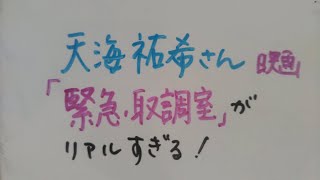 天海祐希さん 映画
「緊急・取調室」が
リアルすぎる！